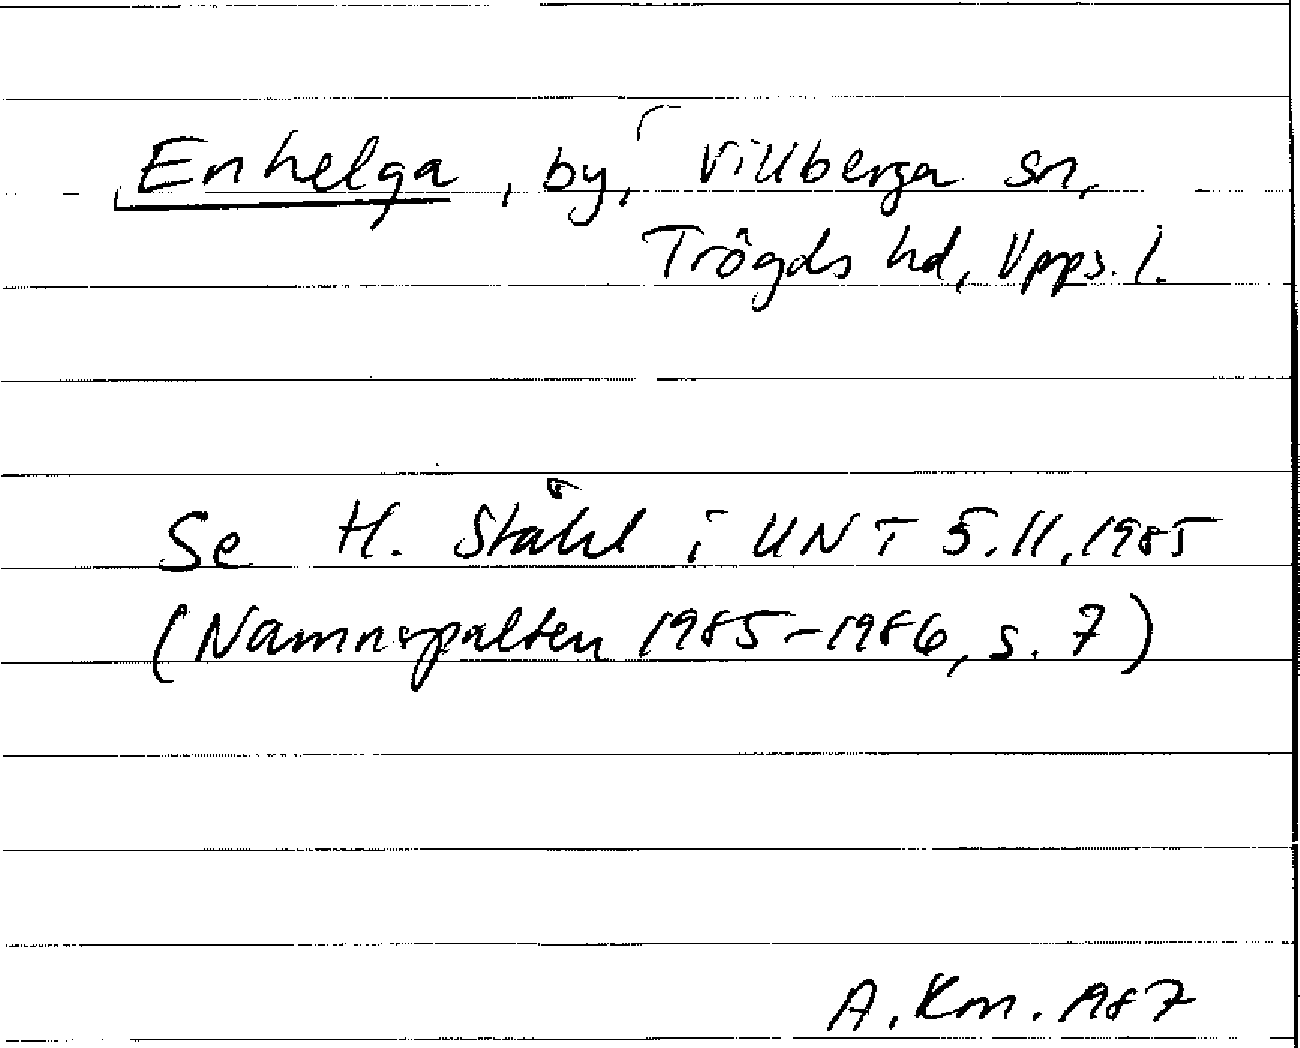 Enhelga, by, Villberga sn,
Trögds hd, Upps. l.
Se H. Ståhl i UNT 5.11.1985
(Namnspalten 1985-1986, s. 7)
A. Km. 1987